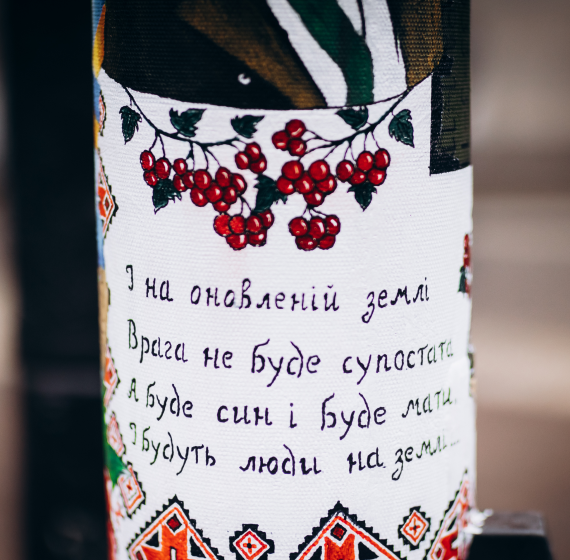 І на оновленій землі
Врага не буде супостата
А буде син і буде мати,
І будуть люди на землі...